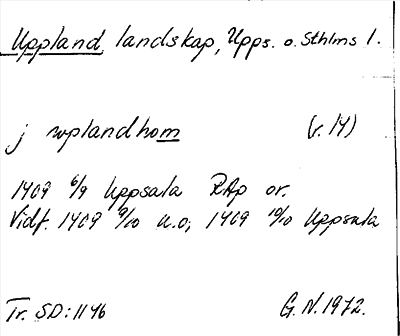 Uppland, landskap, Upps. o. Sthlms l.
j wplandhom (r. 14)
1409 6/9 Uppsala RAp or.
Vidf. 1409 9/10 u.o; 1409 10/10 Uppsala
Tr. SD: 1146 G.N. 1972.